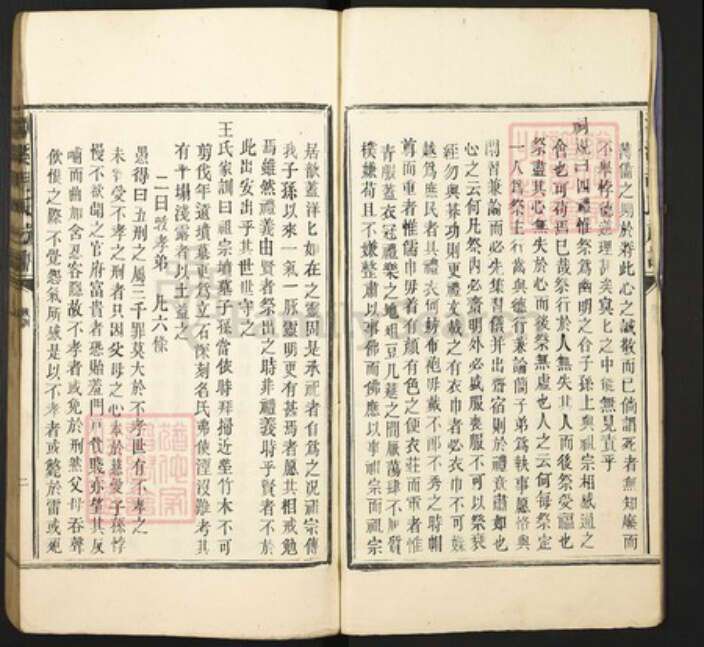 備之則於將此心之誠敬而已倘謂死者無知廢而
不舉悖德逆理甚矣冥冥之中能無見責乎
祠規曰四禮惟祭為幽明之合子孫上與祖宗相感通之
會也可苟焉已哉祭行於人無失其人而後祭受福也
祭盡其心無失於心而後祭無虛也人之云何每祭定
一人為祭主行高與德行兼論簡子弟為執事愿恪與
閑習兼論而必先集習儀并出齋宿則於禮意肅如也
心之云何凡祭內必齋明外必盛服喪服不可以祭衰
絰勿與其功則更禮文載之有衣巾者必衣巾不可媟
越為庶民者具禮衣何妨布袍毋戴不郎不秀之時帽
尊而重者惟儒巾毋着有顏有色之便衣莊而重者惟
青服蓋衣冠禮樂之地俎豆几筵之間厭蕩肆不厭質
樸嫌苟且不嫌整肅以事佛而佛應以事祖宗而祖宗
居歆蓋洋匕如在之靈固是承祀者有為之况祖宗傳
我子孫以來一氣一脈靈明更有甚焉者愿其相戒勉
焉雖然禮義由賢者祭出之時非禮義時乎賢者不於
此出安出乎其世世守之
王氏家訓曰祖宗墳墓子孫當依時拜掃近塋竹木不可
剪伐年遠墳墓更為立石深刻名氏弗使湮沒難考其
有平塌淺露者以土益之
二曰敦孝弟 凡六條
愚得曰五刑之屬三千罪莫大於不孝世有不孝之
未辜受不孝之刑者只因父母之心本於慈愛子孫悖
慢不欲聞之官府富貴者恐貽羞門戶貧賤亦望其反
哺而曲加舍忍容隱故不孝者或免於刑然父母吞聲
飲恨之際不覺怨氣所感是以不孝者或斃於雷或死
二